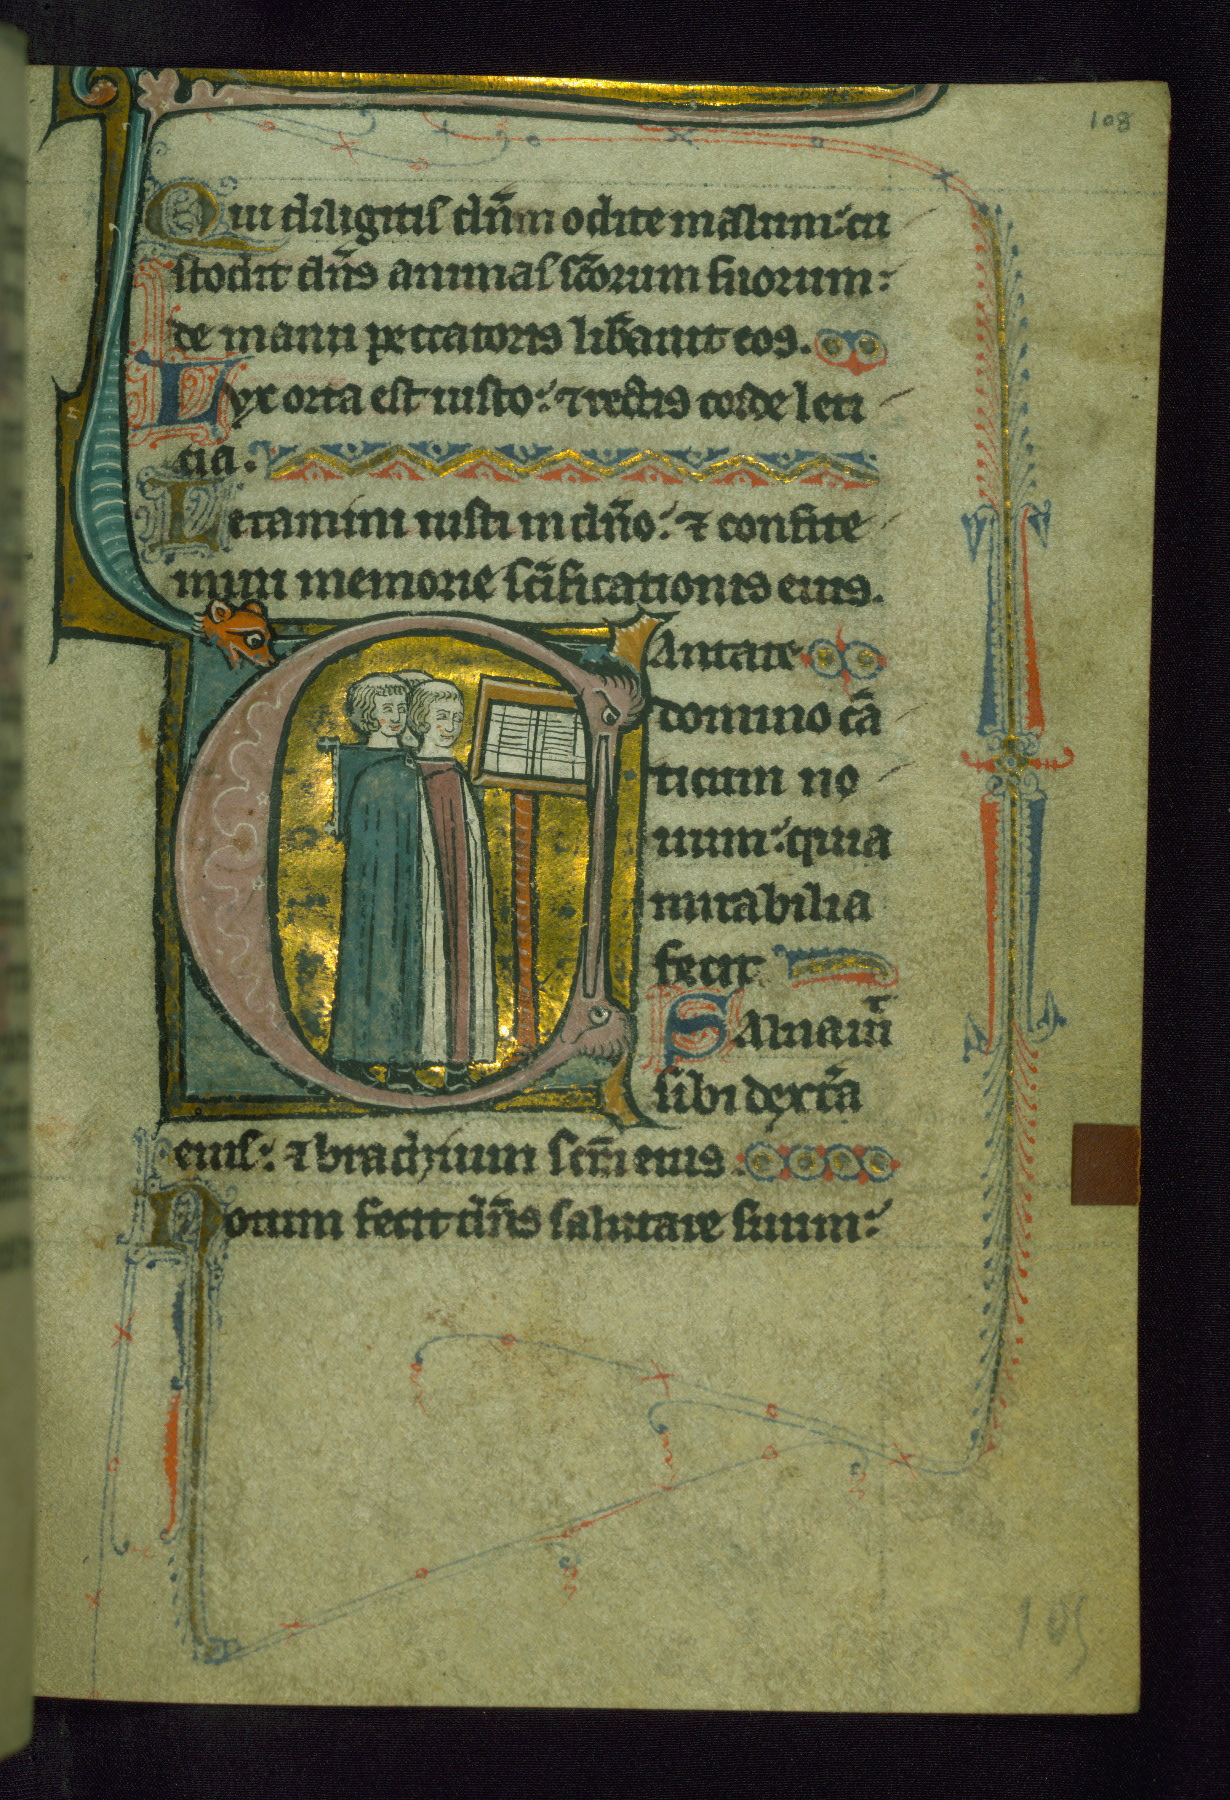 108
Qui diligitis dn̄m odite malum: cu
stodit dn̄s animas sc̄orum suorum:
de manu peccatoris lib̄auit eos.
Lyx orta est iusto: ⁊ rectis corde leti
cia.
Letamini iusti in dn̄o: ⁊ confite
mini memorie sc̄ificationis eius.
Cantate
domino cā
ticum no
uum: quia
mirabilia
fecit
Saluauit
sibi dext̄a
eius: ⁊ brachium sc̄m eius
Notum fecit dn̄s salutare suum:
105